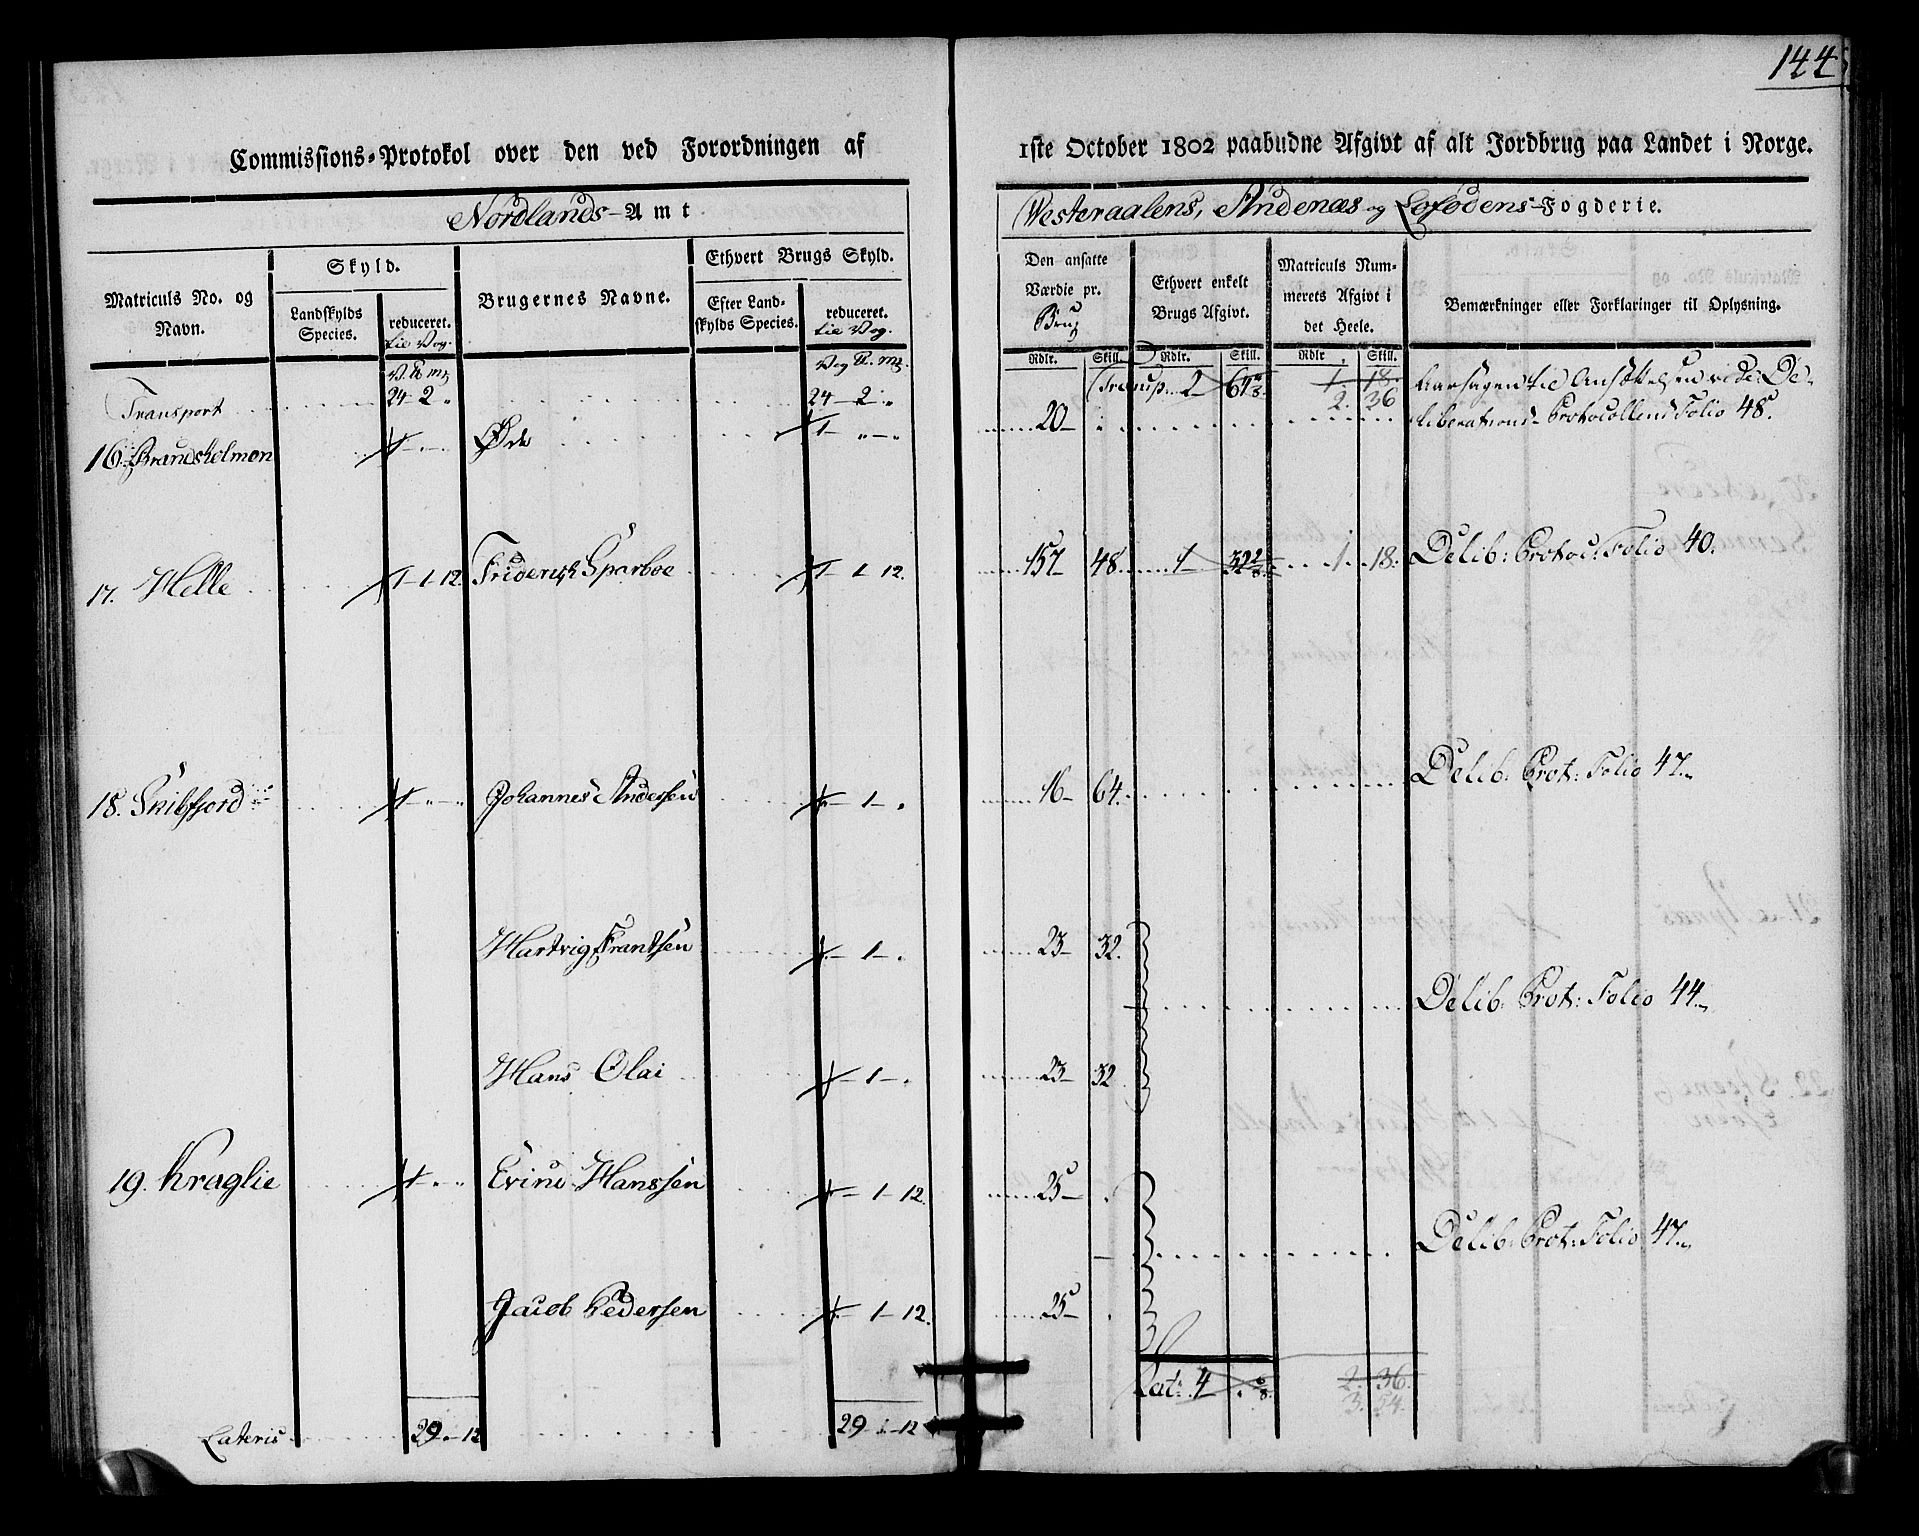 144
Commissions-Protokol over den ved Forordningen af
1ste October 1802 paabudne Afgivt af alt Jordbrug paa Landet i Norge.
Nordlands-Amt
Westeraalens, Andenæs og Lofodens-Fogderie.
Matriculs No. og Navn.
Skyld.
Landskylds Species.
reduceret. til Vog.
Brugernes Navne.
Ethvert Brugs Skyld.
Efter Landskylds Species.
reduceret. til Vog.
Den ansatte Værdie pr. Brug
Ethvert enkelt Brugs Afgivt.
Matriculs Nummerets Afgivt i det Heele.
Bemærkninger eller Forklaringer til Oplysning.
Rdlr. Skill. Rdlr. Skill. Rdlr. Skill.
Transport 24 2 „ 24 - 2 „ Transp. 2 1 18.
2. 36
Aarsagen til Ansættelsen vide De-
liberations-Protocollens Folio 48.
16. Brandsholmen 1 Øde 1 - „ - „ 20 -
17. Helle 1 - 1 12. Friderich Sparboe 1 - 1 12. 157 48. 1 32 2/8 1 18. Delib: Protoc: Folio 40.
18. Snibfjord 1 - „ - „ Johannes Andersen - 1 - „ 16 - 64. Delib: Prot: Folio 47.
Hartvig Frantsen - 1 - „ 23 - 32.
Delib: Prot: Folio 44.
Hans Olai - 1 - „ 23 - 32
19. Kraglie 1 - „ „ Evind Hanssen - 1 - 12. 25 -
Delib: Prot: Folio 47.
Jacob Pedersen - 1 - 12. 25 -
Lat: 4 2. 36.
3. 54.
Lateris 29 „ - 12 29 - 12